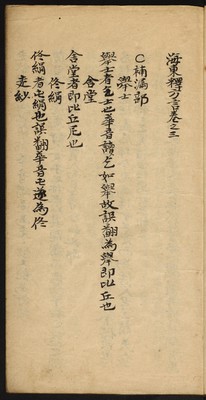 海東釋方言卷之三
○補漏部
擧士
擧士者乞士也華音讀乞如擧故誤翻為擧即比丘也
舍堂
舍堂者即比丘尼也
佟絹
佟絹者屯絹也誤翻華音屯遂為佟
走紗